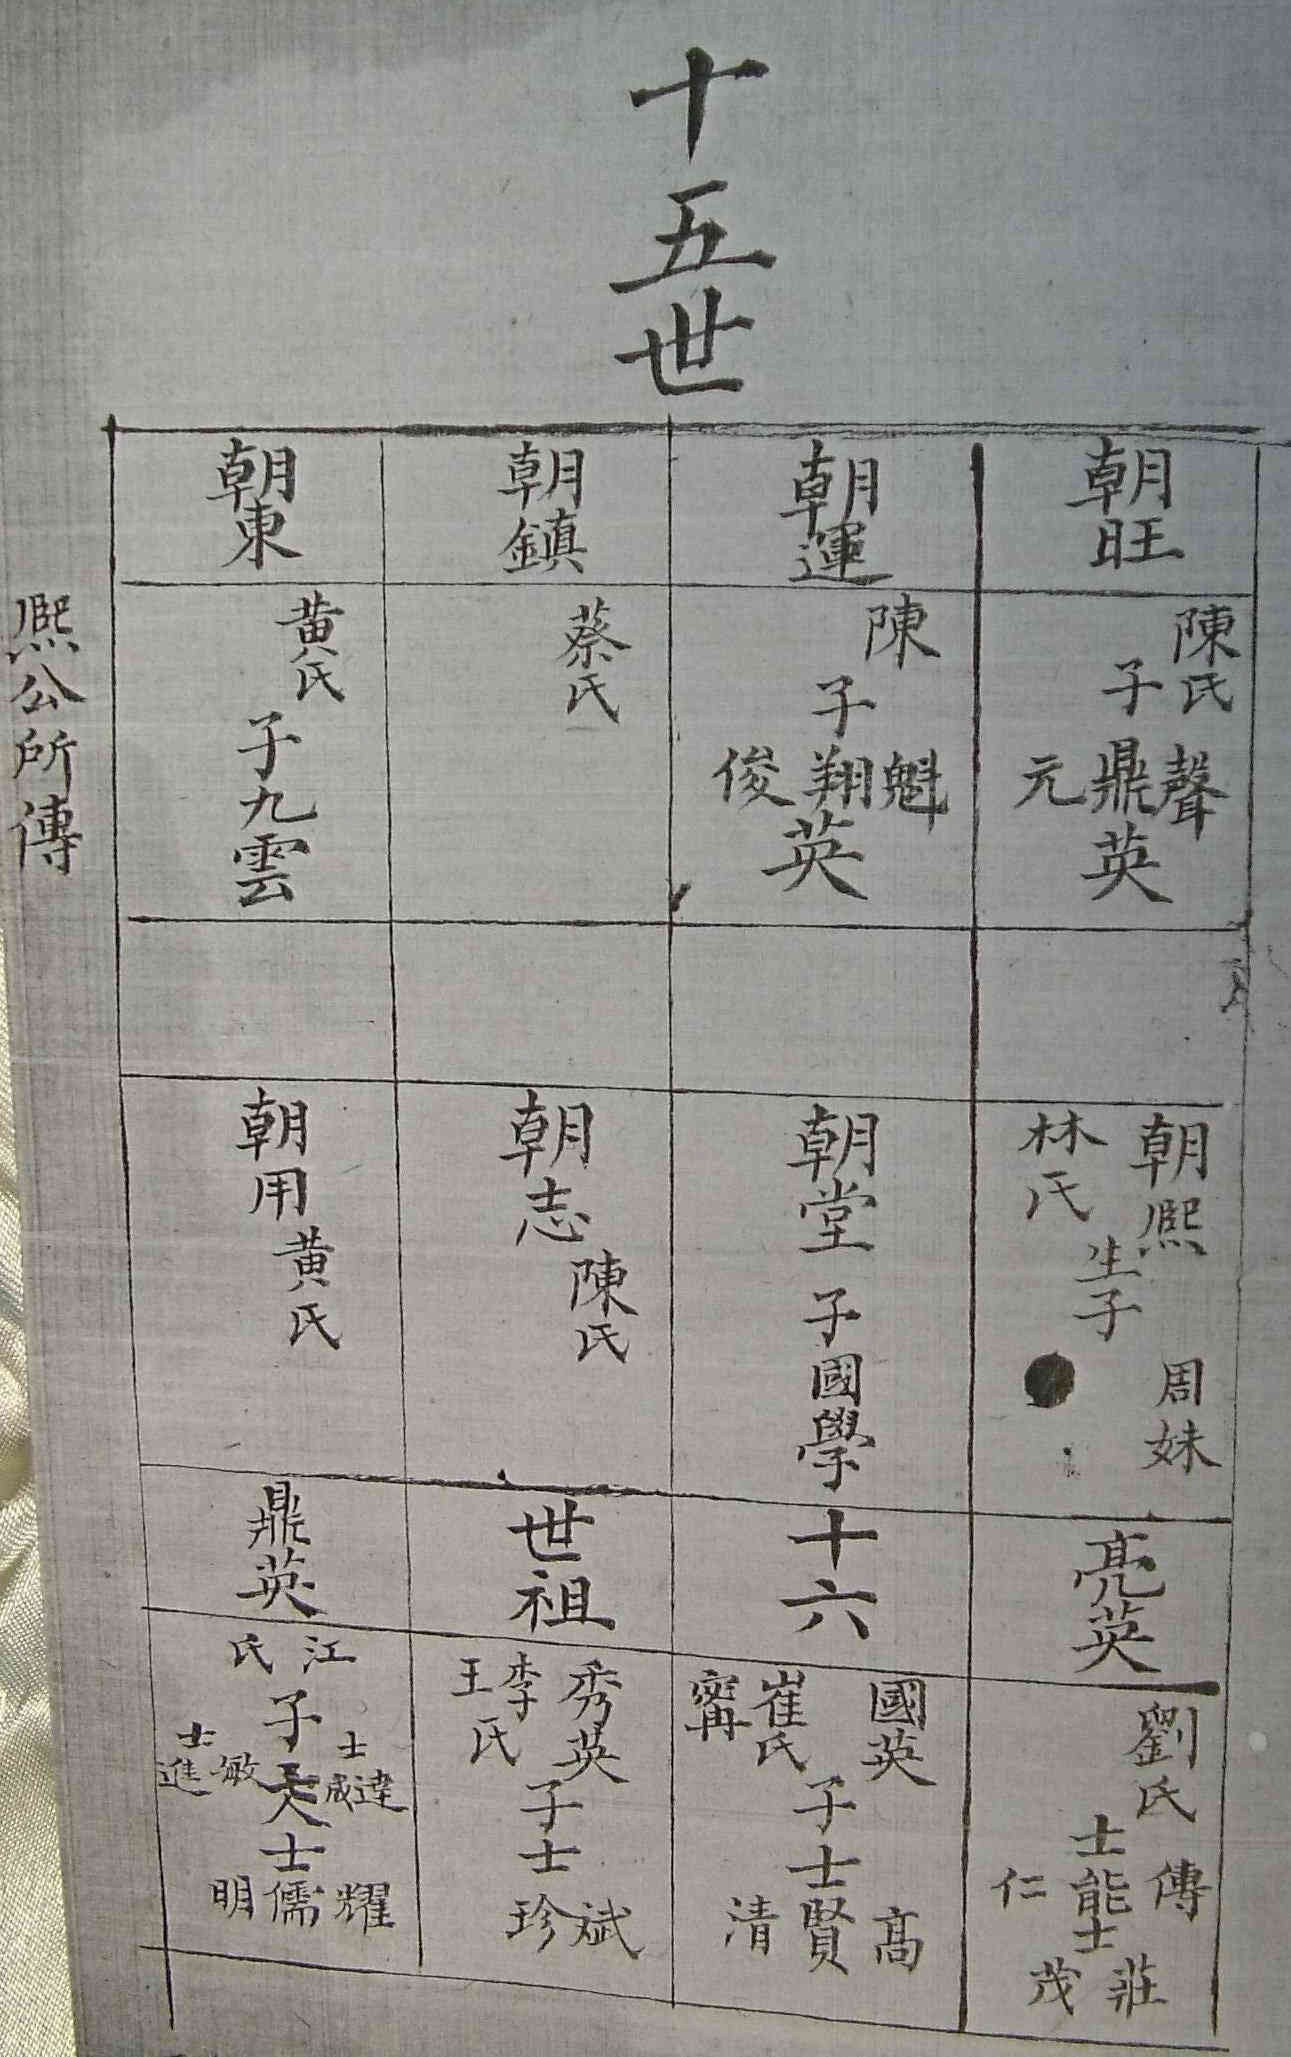 十五世
朝旺
陳氏
子
聲鼎元
英
朝運
陳
子
魁翔俊
英
朝鎮
蔡氏
朝東
黄氏
子九雲
熙公所傳
朝熙
林氏
生子
周妹
朝堂
子國學
朝志
陳氏
朝用
黄氏
亮英
十六
世祖
鼎英
劉氏
士
傳能仁
士
莊茂
國英
崔氏
甯
子
士
高賢清
秀英
李氏
王
子
士
斌珍
江氏
子
士達
威
敏
士進
士
耀儒明